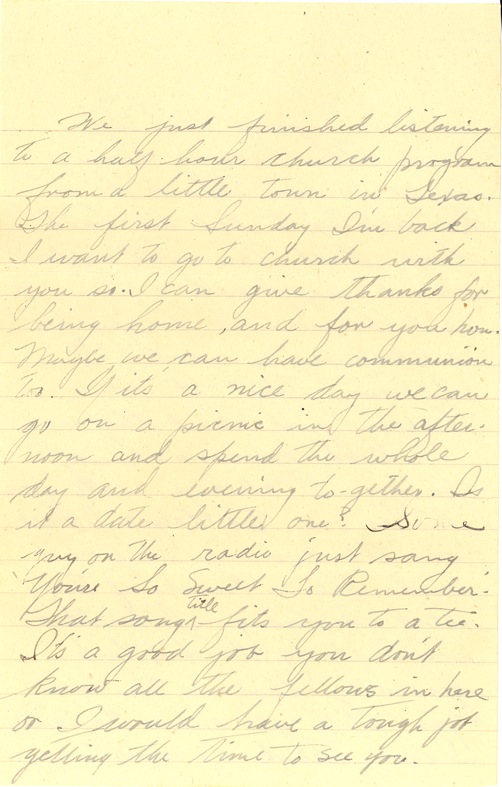 We just finished listening
to a half hour church program
from a little town in Texas.
The first Sunday I'm back
I want to go to church with
you so I can give thanks for
being home, and for you hon.
Maybe we can have communion
too. If its a nice day we can
go on a picnic in the after-
noon and spend the whole
day and evening to-gether. Is
it a date little one? Some
guy on the radio just sang
"You're So Sweet To Remember".
That song title fits you to a tee.
It's a good job you don't
know all the fellows in here
or I would have a tough job
getting the time to see you.